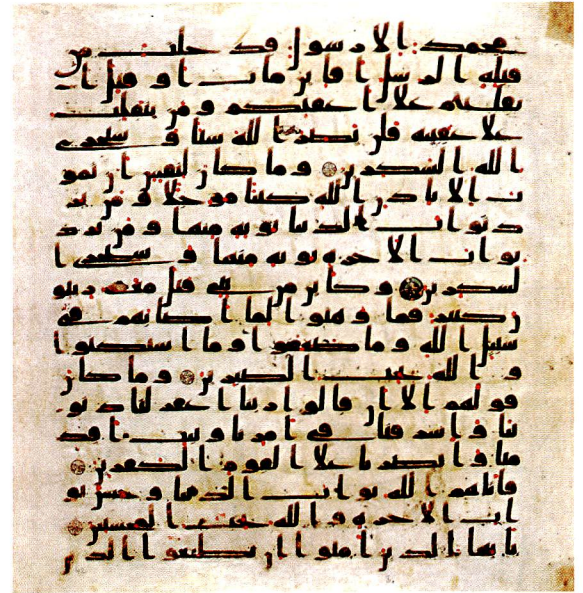 محمد الا رسول قد خلت من
قبله الرسل افاين مات او قتل ا
نقلبتم علا اعقبكم و من ينقلب
علا عقبيه فلن يضر الله شيا و سيجزى
الله الشكرين و ما كان لنفس ان تمو
ت الا باذن الله كتبا موجلا و من ير
د ثواب الدنيا نوته منها و من يرد
ثواب الاخرة نوته منها و سنجزى ا
لشكرين و كاين من نبى قتل معه ربيو
ن كثير فما وهنوا لما اصابهم فى
سبيل الله و ما ضعفوا و ما استكنوا
و الله يحب الصبرين و ما كان
قولهم الا ان قالوا ربنا اغفر لنا ذنو
بنا و اسرفنا فى امرنا و ثبت اقد
منا و انصرنا علا القوم الكفرين
فاتهم الله ثواب الدنيا و حسن ثو
اب الاخرة و الله يحب المحسنين
يايها الذين امنوا ان تطيعوا الذين